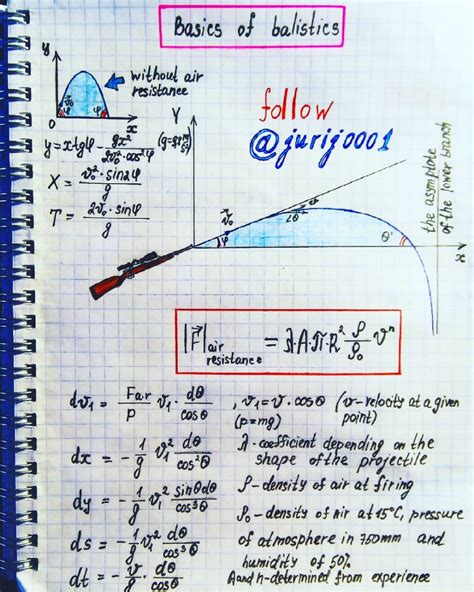 Basics of balistics
y
without air resistance
v⃗₀
φ
φ
0
x
y = x·tgφ - gx²/2v₀²·cos²φ
X = v₀²·sin2φ/g
T = 2v₀·sinφ/g
Y
follow
@jurij0001
v⃗₀
φ
θ
θ'
x
the asymptote of the lower branch
|F⃗| air resistance = λ·A·π·R² ρ/ρ₀ vⁿ
dv₁ = Far/p v₁· dθ/cosθ , v₁ = v·cosθ (v-velocity at a given point)
(p=mg)
dx = - 1/g v₁² dθ/cos²θ
λ - coefficient depending on the shape of the projectile
dy = - 1/g v₁² sinθdθ/cos³θ
ρ - density of air at firing
ρ₀ - density of air at 15°C, pressure of atmosphere in 750mm and humidity of 50%
ds = - 1/g v₁² dθ/cos³θ
dt = - v/g · dθ/cosθ
A and n - determined from experience